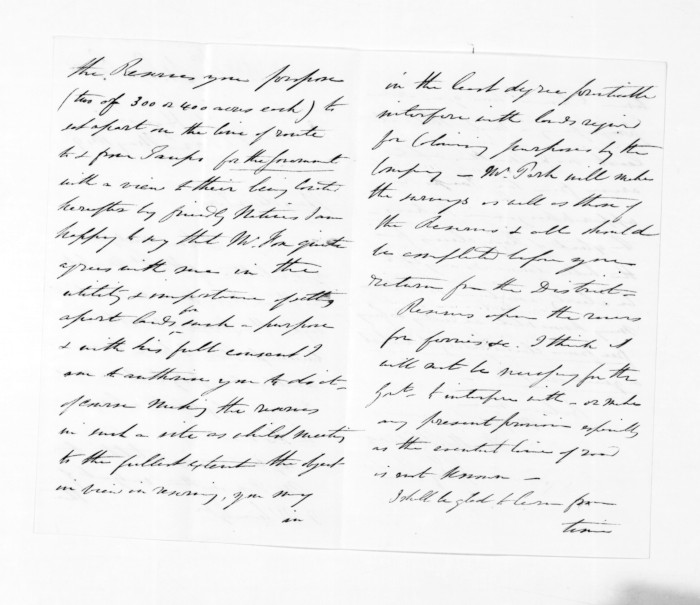 the Reserves you propose
(two of 300 or 400 acres each) to
set apart on the line of route
to & from Taupo for the Government
with a view to their being located
hereafter by friendly Natives I am
happy to say that Mr. Fox quite
agrees with me in the
utility & importance of setting
apart lands for such a purpose
& with his full consent I
am to authorise you to do it -
of course making the reserves
in such a site as whilst meeting
to the fullest extent the object
in view in reserving, you may
in
in the least degree practicable
interfere with lands required
for Colonizing purposes by the
Company - Mr. Park will make
the surveys as well as those of
the Reserves & all should
be completed before you
return from the District -
Reserves upon the rivers
for ferries &c. I think it
will not be necessary for the
Govt. to interfere with - or make
any present provision especially
as the eventual line of road
is not known -
I shall be glad to learn from
time